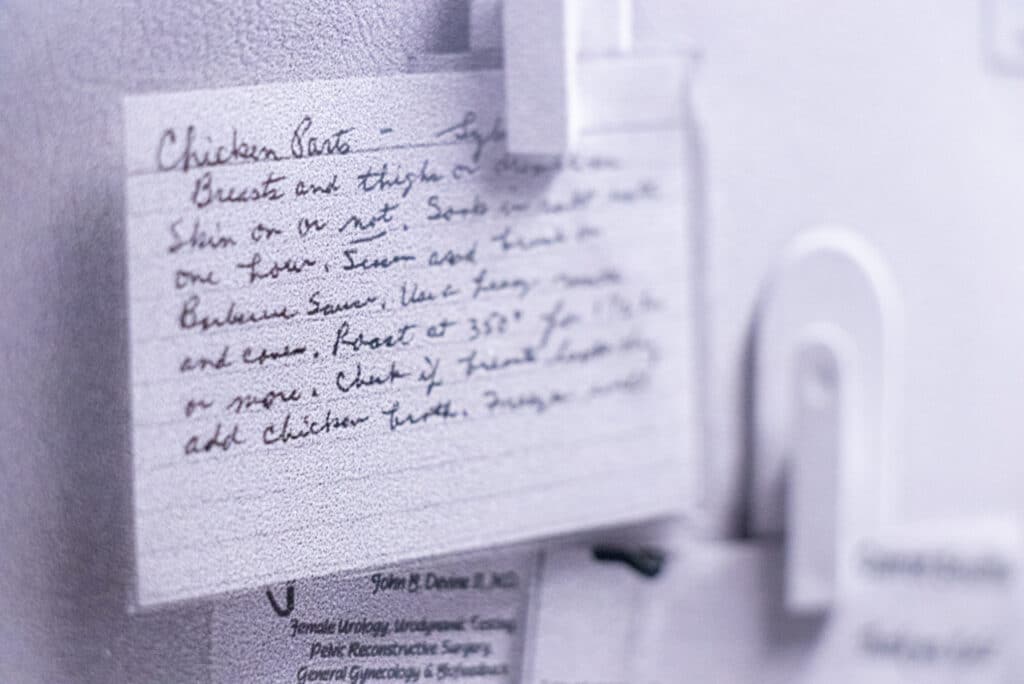 Chicken Parts -
Breasts and thighs or
Skin on or not. Soak in salt water
one hour. Season and brush on
Barbecue Sauce. Use a heavy
and cover. Roast at 350° for 1½ hr
or more. Check if
add chicken broth. Freeze well
John B. Devine II, M.D.
Female Urology, Urodynamic Testing,
Pelvic Reconstructive Surgery,
General Gynecology & Biofeedback